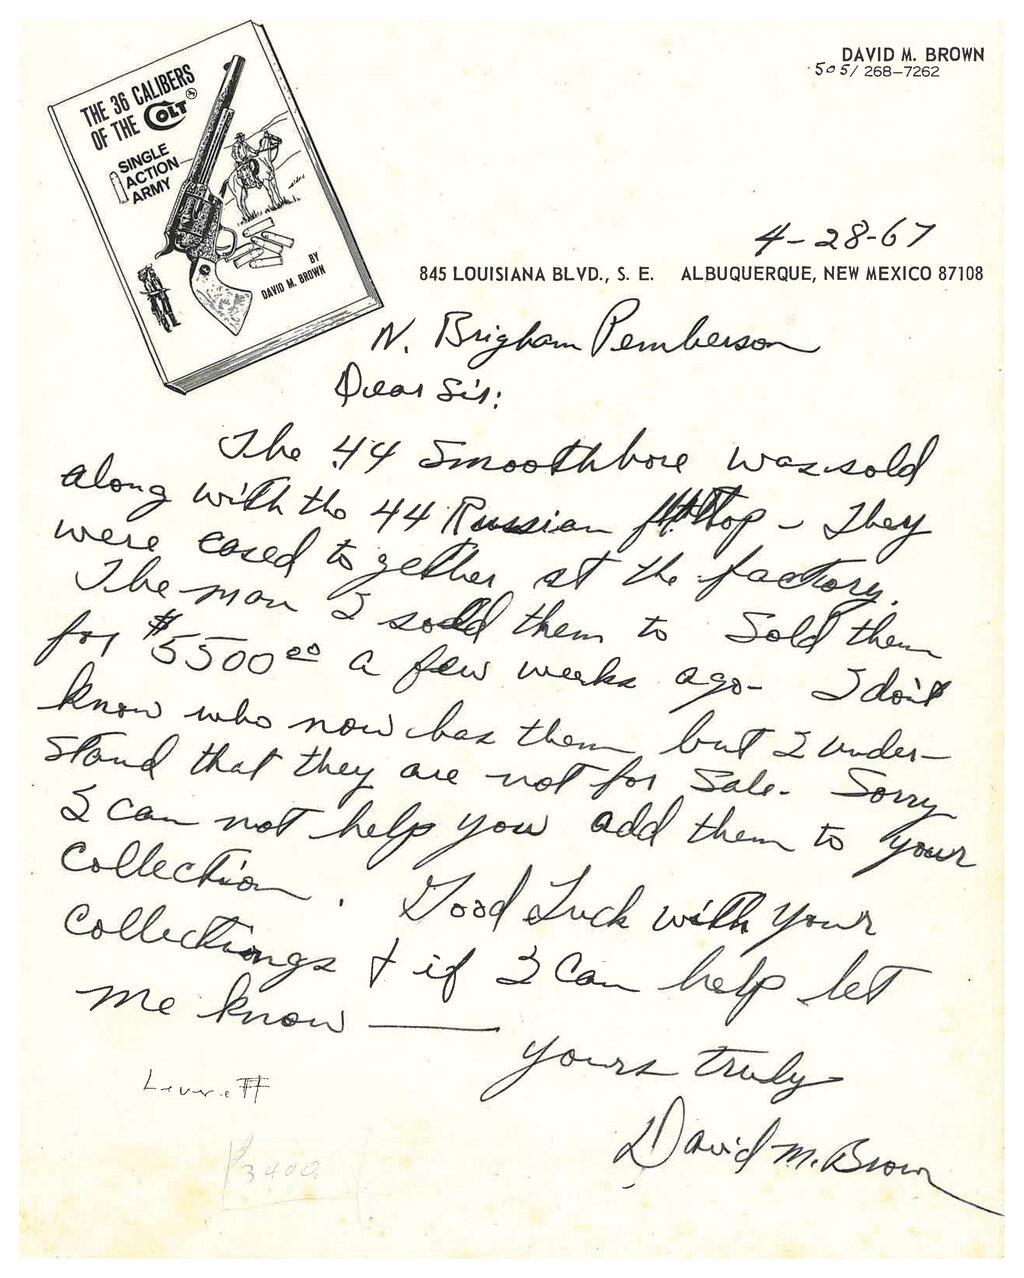 DAVID M. BROWN
505/ 268-7262
THE 36 CALIBERS
OF THE COLT
SINGLE
ACTION
ARMY
BY
DAVID M. BROWN
4-28-67
845 LOUISIANA BLVD., S. E. ALBUQUERQUE, NEW MEXICO 87108
N. Brigham Pemberson
Dear Sir:
The .44 Smoothbore was sold
along with the 44 Russian flattop - They
were cased together at the factory.
The man I sold them to Sold them
for $5500.00 a few weeks ago - I don't
know who now has them but I under-
stand that they are not for Sale. Sorry
I can not help you add them to your
Collection. Good Luck with your
Collectiongs + if I Can help let
me know
yours truly
David M. Brown
Leverett
3400